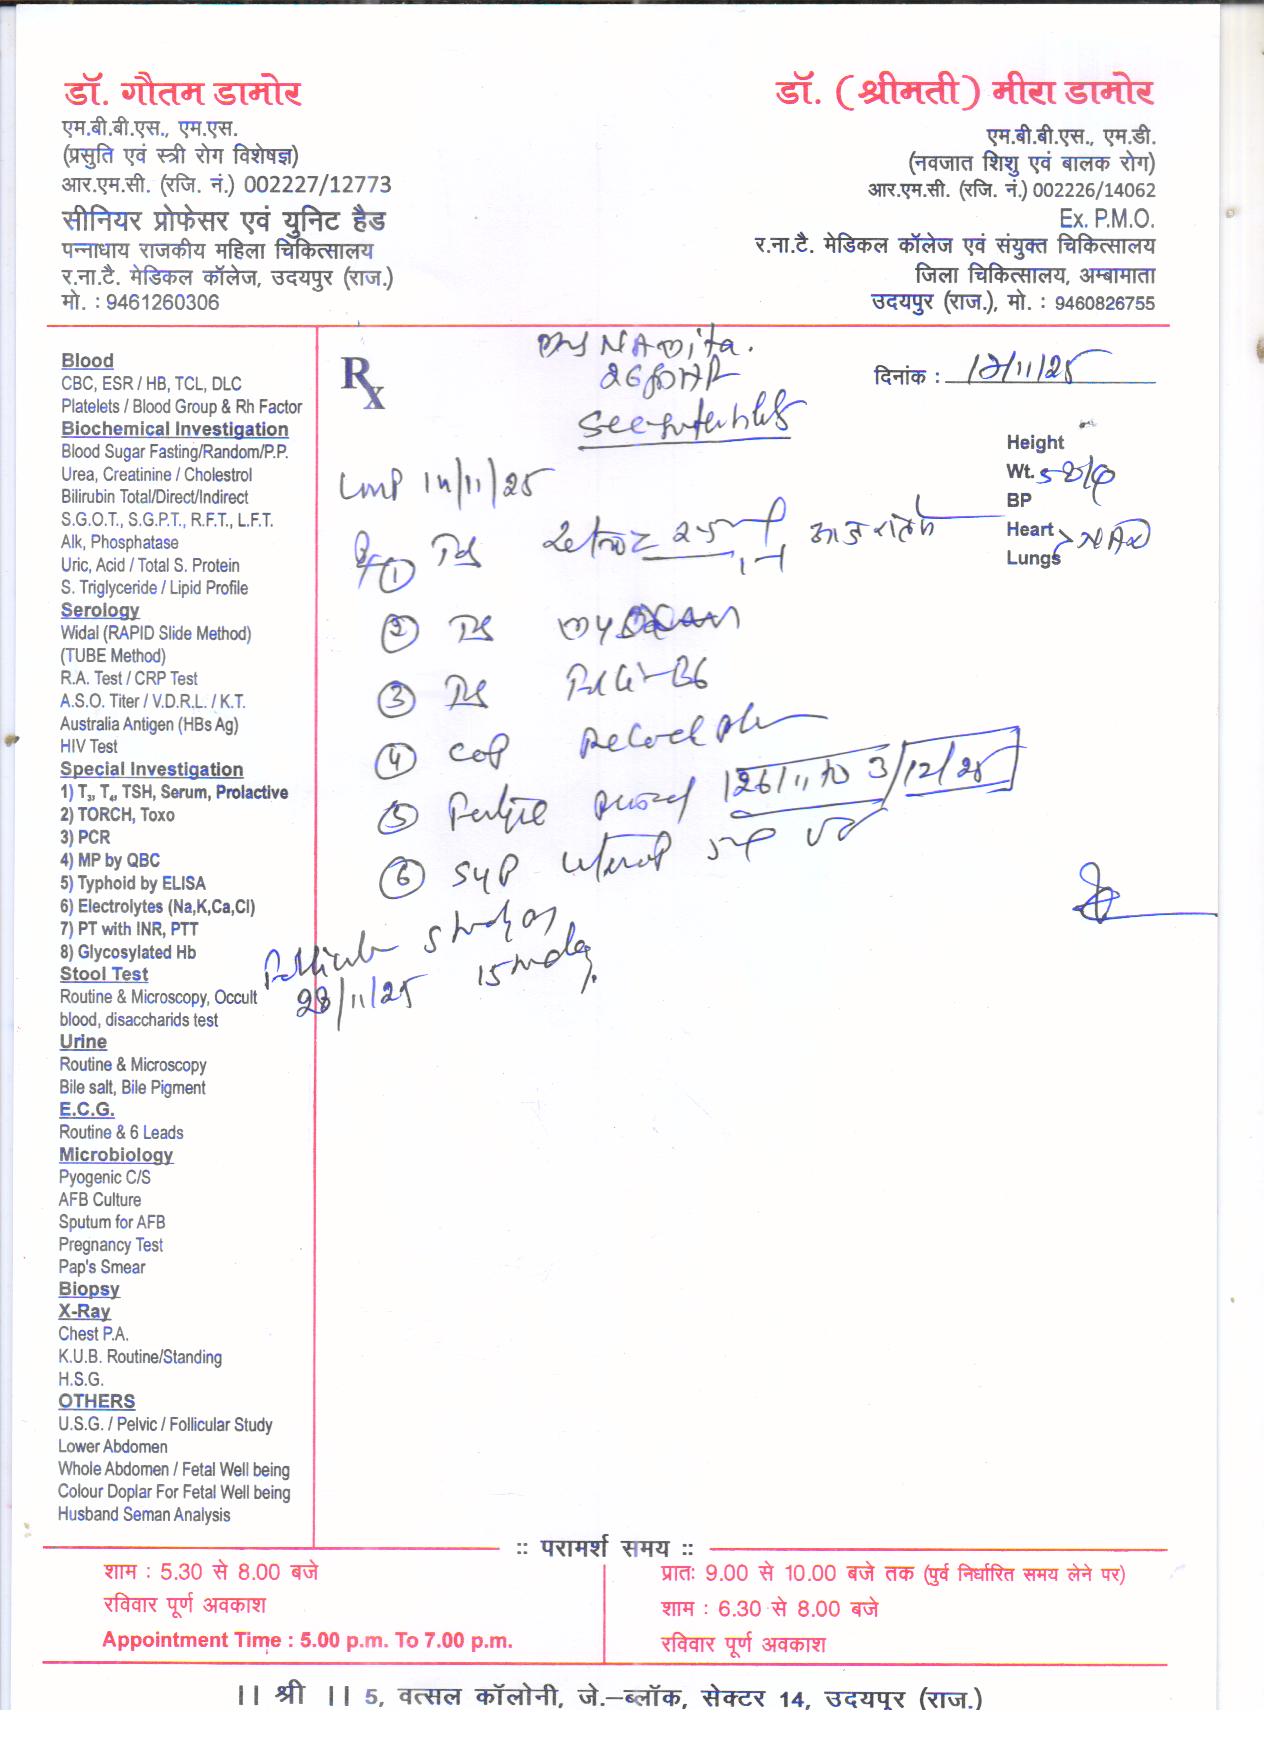 डॉ. गौतम डामोर
एम.बी.बी.एस., एम.एस.
(प्रसुति एवं स्त्री रोग विशेषज्ञ)
आर.एम.सी. (रजि. नं.) 002227/12773
सीनियर प्रोफेसर एवं युनिट हैड
पन्नाधाय राजकीय महिला चिकित्सालय
र.ना.टै. मेडिकल कॉलेज, उदयपुर (राज.)
मो. : 9461260306
डॉ. (श्रीमती) मीरा डामोर
एम.बी.बी.एस., एम.डी.
(नवजात शिशु एवं बालक रोग)
आर.एम.सी. (रजि. नं.) 002226/14062
Ex. P.M.O.
र.ना.टै. मेडिकल कॉलेज एवं संयुक्त चिकित्सालय
जिला चिकित्सालय, अम्बामाता
उदयपुर (राज.), मो. : 9460826755
Blood
CBC, ESR / HB, TCL, DLC
Platelets / Blood Group & Rh Factor
Biochemical Investigation
Blood Sugar Fasting/Random/P.P.
Urea, Creatinine / Cholestrol
Bilirubin Total/Direct/Indirect
S.G.O.T., S.G.P.T., R.F.T., L.F.T.
Alk, Phosphatase
Uric, Acid / Total S. Protein
S. Triglyceride / Lipid Profile
Serology
Widal (RAPID Slide Method)
(TUBE Method)
R.A. Test / CRP Test
A.S.O. Titer / V.D.R.L. / K.T.
Australia Antigen (HBs Ag)
HIV Test
Special Investigation
1) T₃, T₄, TSH, Serum, Prolactive
2) TORCH, Toxo
3) PCR
4) MP by QBC
5) Typhoid by ELISA
6) Electrolytes (Na,K,Ca,Cl)
7) PT with INR, PTT
8) Glycosylated Hb
Stool Test
Routine & Microscopy, Occult
blood, disaccharids test
Urine
Routine & Microscopy
Bile salt, Bile Pigment
E.C.G.
Routine & 6 Leads
Microbiology
Pyogenic C/S
AFB Culture
Sputum for AFB
Pregnancy Test
Pap's Smear
Biopsy
X-Ray
Chest P.A.
K.U.B. Routine/Standing
H.S.G.
OTHERS
U.S.G. / Pelvic / Follicular Study
Lower Abdomen
Whole Abdomen / Fetal Well being
Colour Doplar For Fetal Well being
Husband Seman Analysis
Rx
NAmita.
दिनांक : /11/25
Height
Wt.
BP
Heart
Lungs
NAD
LMP 14/11/25
① Letroz 2.5
②
③
④ Cap
⑤ Fertile period 26/11 to 3/12/25
⑥ Syp
Follicular study on
28/11/25 15th day
:: परामर्श समय ::
शाम : 5.30 से 8.00 बजे
रविवार पूर्ण अवकाश
Appointment Time : 5.00 p.m. To 7.00 p.m.
प्रातः 9.00 से 10.00 बजे तक (पुर्व निर्धारित समय लेने पर)
शाम : 6.30 से 8.00 बजे
रविवार पूर्ण अवकाश
|| श्री || 5, वत्सल कॉलोनी, जे.–ब्लॉक, सेक्टर 14, उदयपुर (राज.)